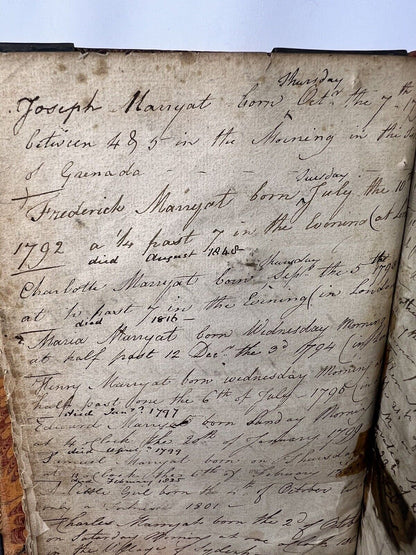 Thursday
Joseph Marryat born Octr. the 7th
between 4 & 5 in the Morning in the
of Grenada
Tuesday
Frederick Marryat born July the 10
1792 a ¼ past 7 in the Evening (at
died August 1848
Thursday
Charlotte Marryat born Septr. the 5th 1793
at ¼ past 7 in the Evening (in London
died 1816
Maria Marryat born Wednesday Morning
at half past 12 Decr. the 3d 1794 (in
Henry Marryat born Wednesday Morning
half past one the 6th of July 1796 (in
died Jany. 1797
Edward Marryat born Sunday Morn
at 4 Clock the 20th of January 1799
died 1799
Marryat born on Thursday
of February
died February 1835
Little Girl born the 4th of October
1801
Charles Marryat born the 2d of Octo
on Saturday Morning at
in the Village of Sydenham